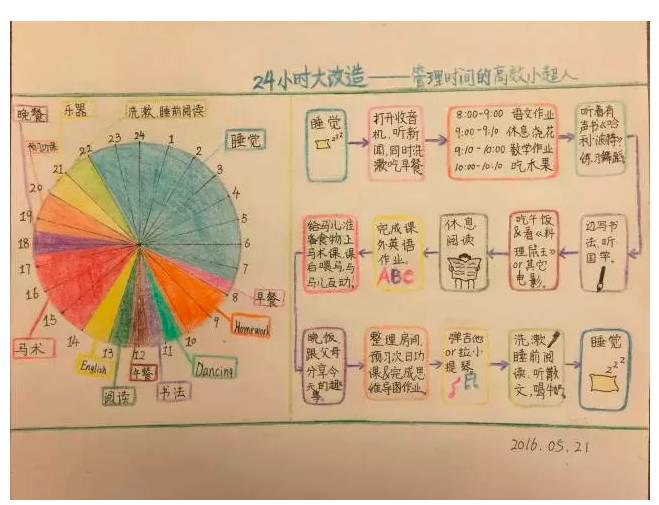 24小时大改造——管理时间的高效小超人
晚餐
乐器
洗漱、睡前阅读
睡觉
预习功课
24
1
2
3
4
5
6
7
8
9
10
11
12
13
14
15
16
17
18
19
20
21
22
23
早餐
Homework
Dancing
书法
午餐
阅读
English
马术
睡觉
zzz
打开收音
机,听新
闻,同时洗
漱吃早餐
8:00-9:00 语文作业
9:00-9:10 休息,浇花
9:10-10:00 数学作业
10:00-10:10 吃水果
听着有
声书《哈
利·波特》
练习舞蹈
给马儿准
备食物,上
马术课,课
后喂马,与
马儿互动。
完成课
外英语
作业。
ABC
休息
阅读
吃午饭
&看《料
理鼠王》
or其它
电影。
边写书
法,听
国学。
晚饭,
跟父母
分享今
天的趣
事。
整理房间,
预习次日功
课&完成思
维导图作业。
弹吉他
or拉小
提琴
洗漱
睡前阅
读,听散
文,喝牛奶。
睡觉
zzz
2016.05.21